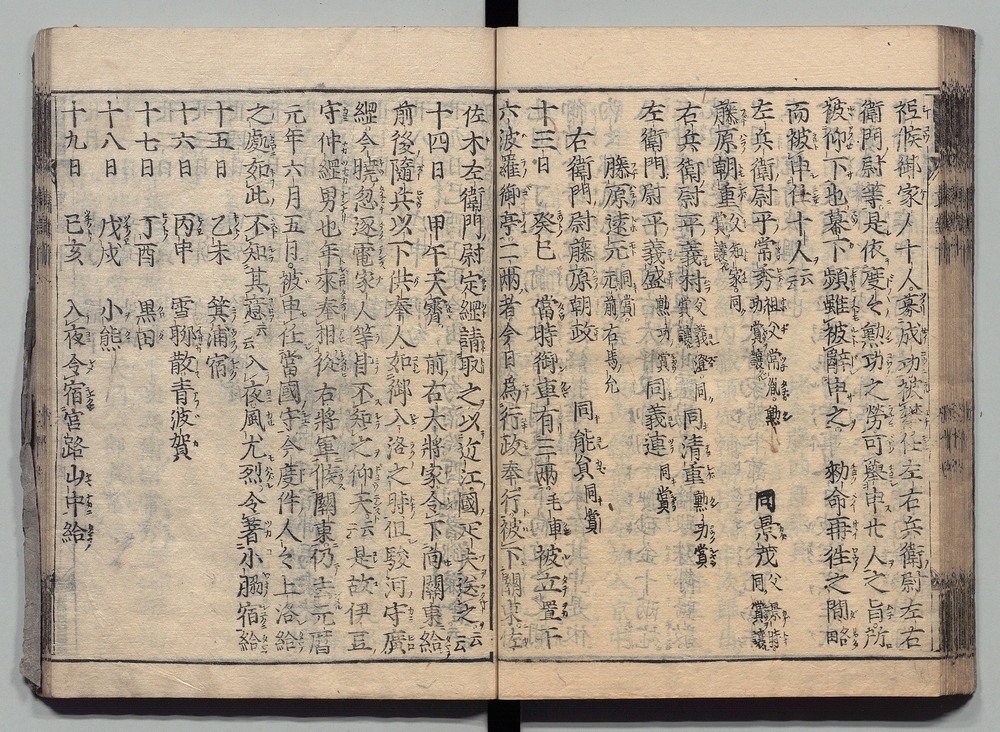 祗候御家人十人募成功被拜任左右兵衛尉左右
衛門尉等是依度々勲功之勞可舉申廿人之旨所
被仰下也幕下頻雖被辭申之 勅命再往之間略
而被申任十人云々
左兵衛尉平常秀祖父常胤勲功賞讓之 同景茂父景時同賞讓
藤原朝重父知家同賞讓之
右兵衛尉平義村父義澄同賞讓 同清重勲功賞
左衛門尉平義盛勲功賞 同義連同賞
藤原遠元元前右馬允同賞
右衛門尉藤原朝政 同能員同賞
十三日 癸巳 當時御車有三兩毛車被立置于
六波羅御亭二兩者今日爲行政奉行被下關東佐
佐木左衛門尉定經請取之以近江國疋夫送之云々
十四日 甲午天霽 前右大將家令下向關東給
前後隨兵以下供奉人如御入洛之時但駿河守廣
綱今曉忽逐電家人等自不知之仰天云々是故伊豆
守仲綱男也年來奉相從右將軍候關東仍去元暦
元年六月五日被申任當國守今度件人々上洛給
之處如此不知其意云々入夜風尤烈令著小脇宿給
十五日 乙未 箕浦宿
十六日 丙申 雪聊散青波賀
十七日 丁酉 黒田
十八日 戊戌 小熊
十九日 己亥 入夜令宿宮路山中給